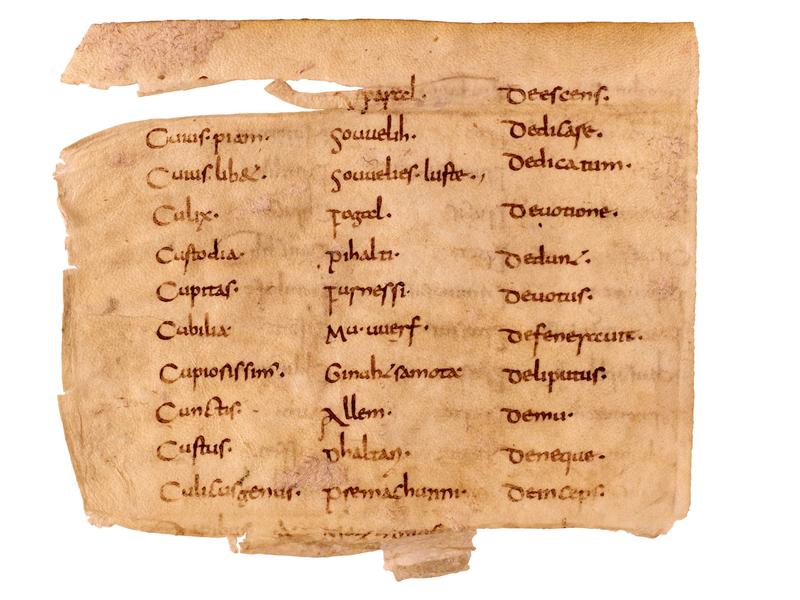 partel. Deescens.
Cuius. piam. souuelih. Dedicase.
Cuius. libet. souuelies. luste. Dedicatum.
Culix. Deuotione.
Custodia. pihalti. Dedunt.
Cupitas. furnessi. Deuotus.
Cubilia Mu. uuerf.
Cupiosissim. Ginuhtsamota Deliputus.
Cunctis. Allem. Demu.
Custus. Deneque.
Culicusgenus. Deinceps.